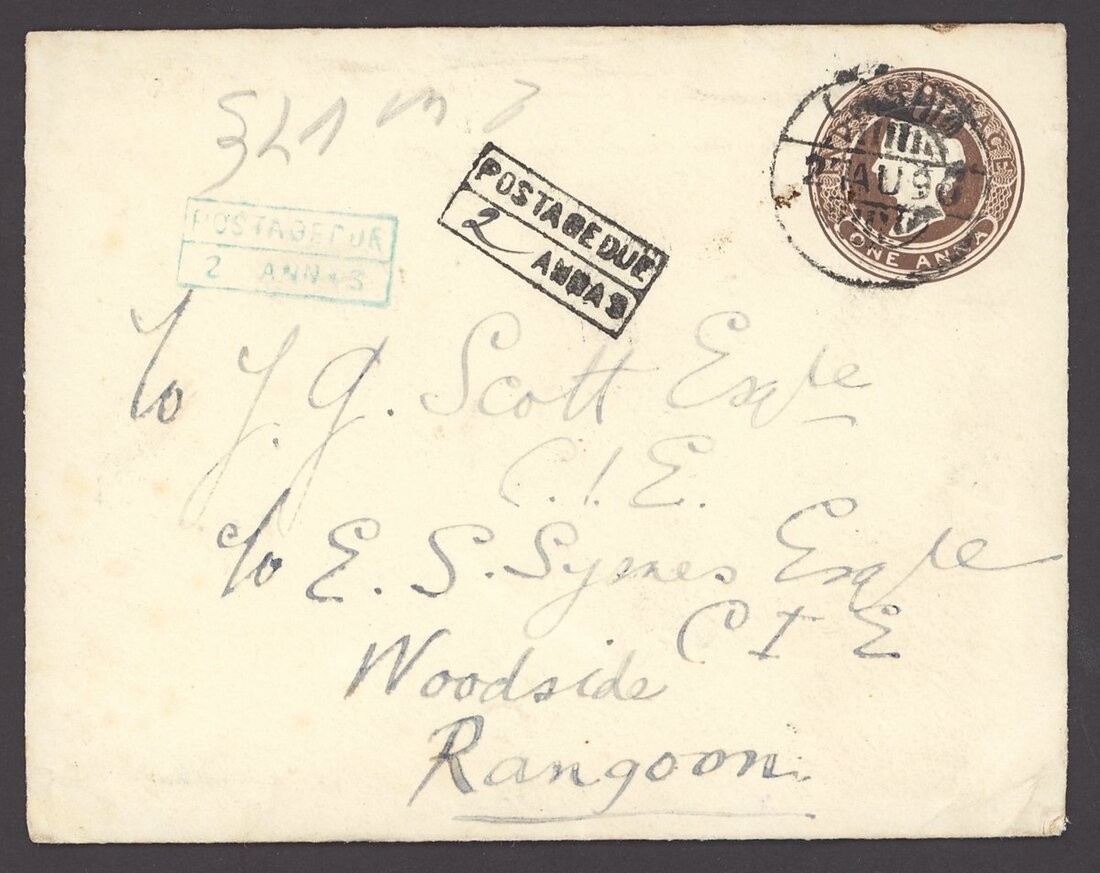 POSTAGE DUE
2 ANNAS
POSTAGE DUE
2 ANNAS
AU 96
ONE ANNA
To J. G. Scott Esqre
C.I.E.
c/o E. S. Symes Esqre
C I E
Woodside
Rangoon.